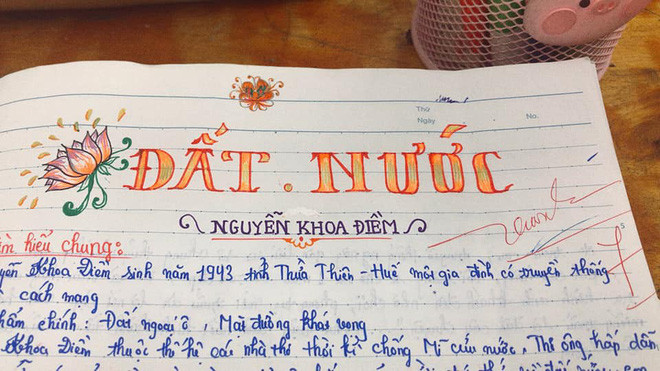 Thứ
Ngày
No.
ĐẤT. NƯỚC
NGUYỄN KHOA ĐIỀM
hiểu chung:
Khoa Điềm sinh năm 1943 tỉnh Thừa Thiên - Huế một gia đình có truyền thống
cách mạng
chính: Đất ngoại ô, Mặt đường khát vọng
Khoa Điềm thuộc thế hệ các nhà thơ thời kì chống Mĩ cứu nước. Thơ ông hấp dẫn